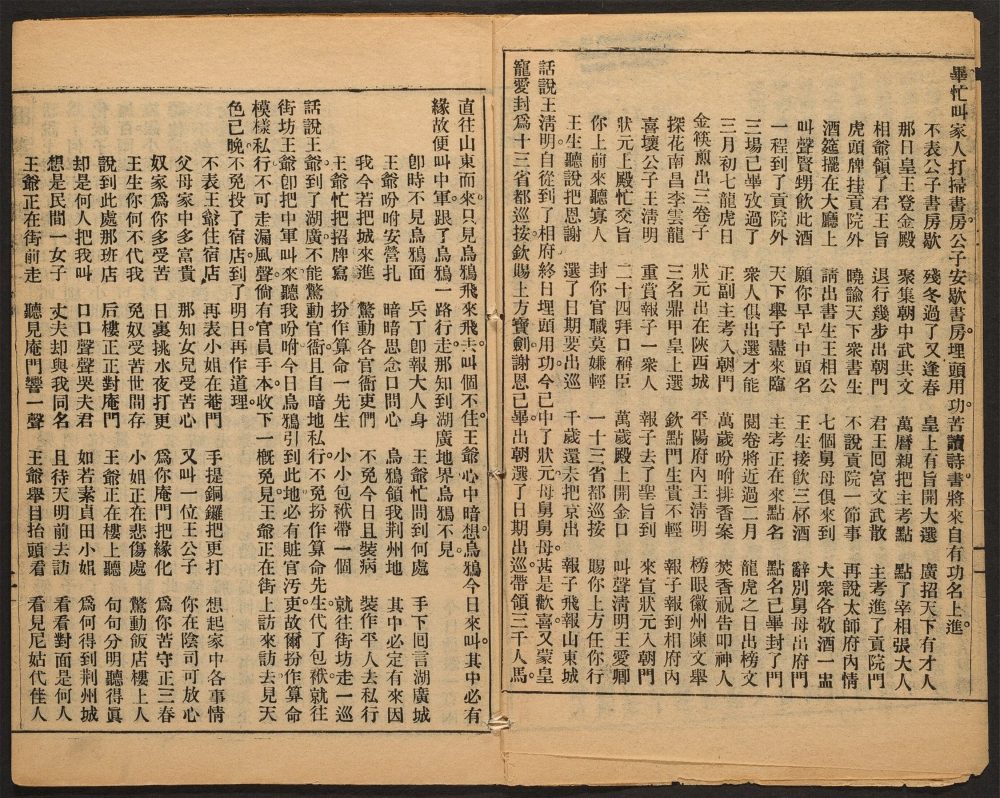 畢忙叫家人打掃書房。公子安歇書房。埋頭用功苦讀詩書將來自有功名上進。
不表公子書房歇 殘冬過了又逢春 皇上有旨開大選 廣招天下有才人
那日皇王登金殿 聚集朝中武共文 萬曆親把主考點 點了宰相張大人
相爺領了君王旨 退行幾步出朝門 君王囘宮文武散 主考進了貢院門
虎頭牌挂貢院外 曉諭天下衆書生 不說貢院一節事 再說太師府內情
酒筵擺在大廳上 請出書生王相公 七個舅母俱來到 大衆各敬酒一盅
叫聲賢甥飲此酒 願你早早中頭名 王生接飲三杯酒 辭別舅母出府門
一程到了貢院外 天下舉子盡來臨 主考正在來點名 點名已畢封了門
三場已畢攷過了 衆人俱出選才能 閱卷將近過二月 龍虎之日出榜文
三月初七龍虎日 正副主考入朝門 萬歲吩咐排香案 焚香祝告叩神人
金筷煎出三卷子 狀元出在陝西城 平陽府內王清明 榜眼徽州陳文舉
探花南昌李雲龍 三名鼎甲皇上選 欽點門生貴不輕 報子報到相府內
喜壞公子王清明 重賞報子一衆人 報子去了聖旨到 來宣狀元入朝門
狀元上殿忙交旨 二十四拜口稱臣 萬歲殿上開金口 叫聲清明王愛卿
你上前來聽寡人 封你官職莫嫌輕 一十三省都巡按 賜你上方任你行
王生聽說把恩謝 選了日期要出巡 千歲還未把京出 報子飛報山東城
話說王淸明自從到了相府終日埋頭用功今已中了狀元母舅舅母。甚是歡喜。又蒙皇
寵愛封爲十三省都巡按欽賜上方寶劍謝恩已畢出朝選了日期出巡帶領三千人馬。
直往山東而來只見烏鴉飛來飛去叫個不住。王爺心中暗想烏鴉今日來叫其中必有
緣故便叫中軍跟了烏鴉一路行走那知到湖廣地界烏鴉不見。
卽時不見烏鴉面 兵丁卽報大人身 王爺忙問到何處 手下囘言湖廣城
王爺吩咐安營扎 暗暗思念口問心 烏鴉領我荆州地 其中必定有來因
我今若把城來進 驚動各官衙吏們 不免今日且裝病 裝作平人去私行
王爺忙把招牌寫 扮作算命一先生 小小包袱帶一個 就往街坊走一巡
話說王爺到了湖廣不能驚動官衙且自暗地私行不免扮作算命先生代了包袱就往
街坊王爺卽把中軍叫來聽我吩咐今日烏鴉引到此地必有賍官汚吏故爾扮作算命
模樣私行不可走漏風聲倘有官員手本收下一概免見王爺正在街上訪來訪去見天
色已晚不免投了宿店到了明日再作道理。
不表王爺住宿店 再表小姐在菴門 手提銅鑼把更打 想起家中各事情
父母家中多富貴 那知女兒受苦心 又叫一位王公子 你在陰司可放心
奴家爲你多受苦 日裏挑水夜打更 爲你庵門把緣化 爲你苦守正三春
王生你何不代我 免奴受苦世間存 小姐正在悲傷處 驚動飯店樓上人
說到此處那班店 后樓正正對庵門 王爺正在樓上聽 句句分明聽得眞
却是何人把我叫 口口聲聲哭夫君 如若素貞田小姐 爲何得到荆州城
想是民間一女子 丈夫却與我同名 且待天明前去訪 看看對面是何人
王爺正在街前走 聽見庵門響一聲 王爺舉目抬頭看 看見尼姑代佳人